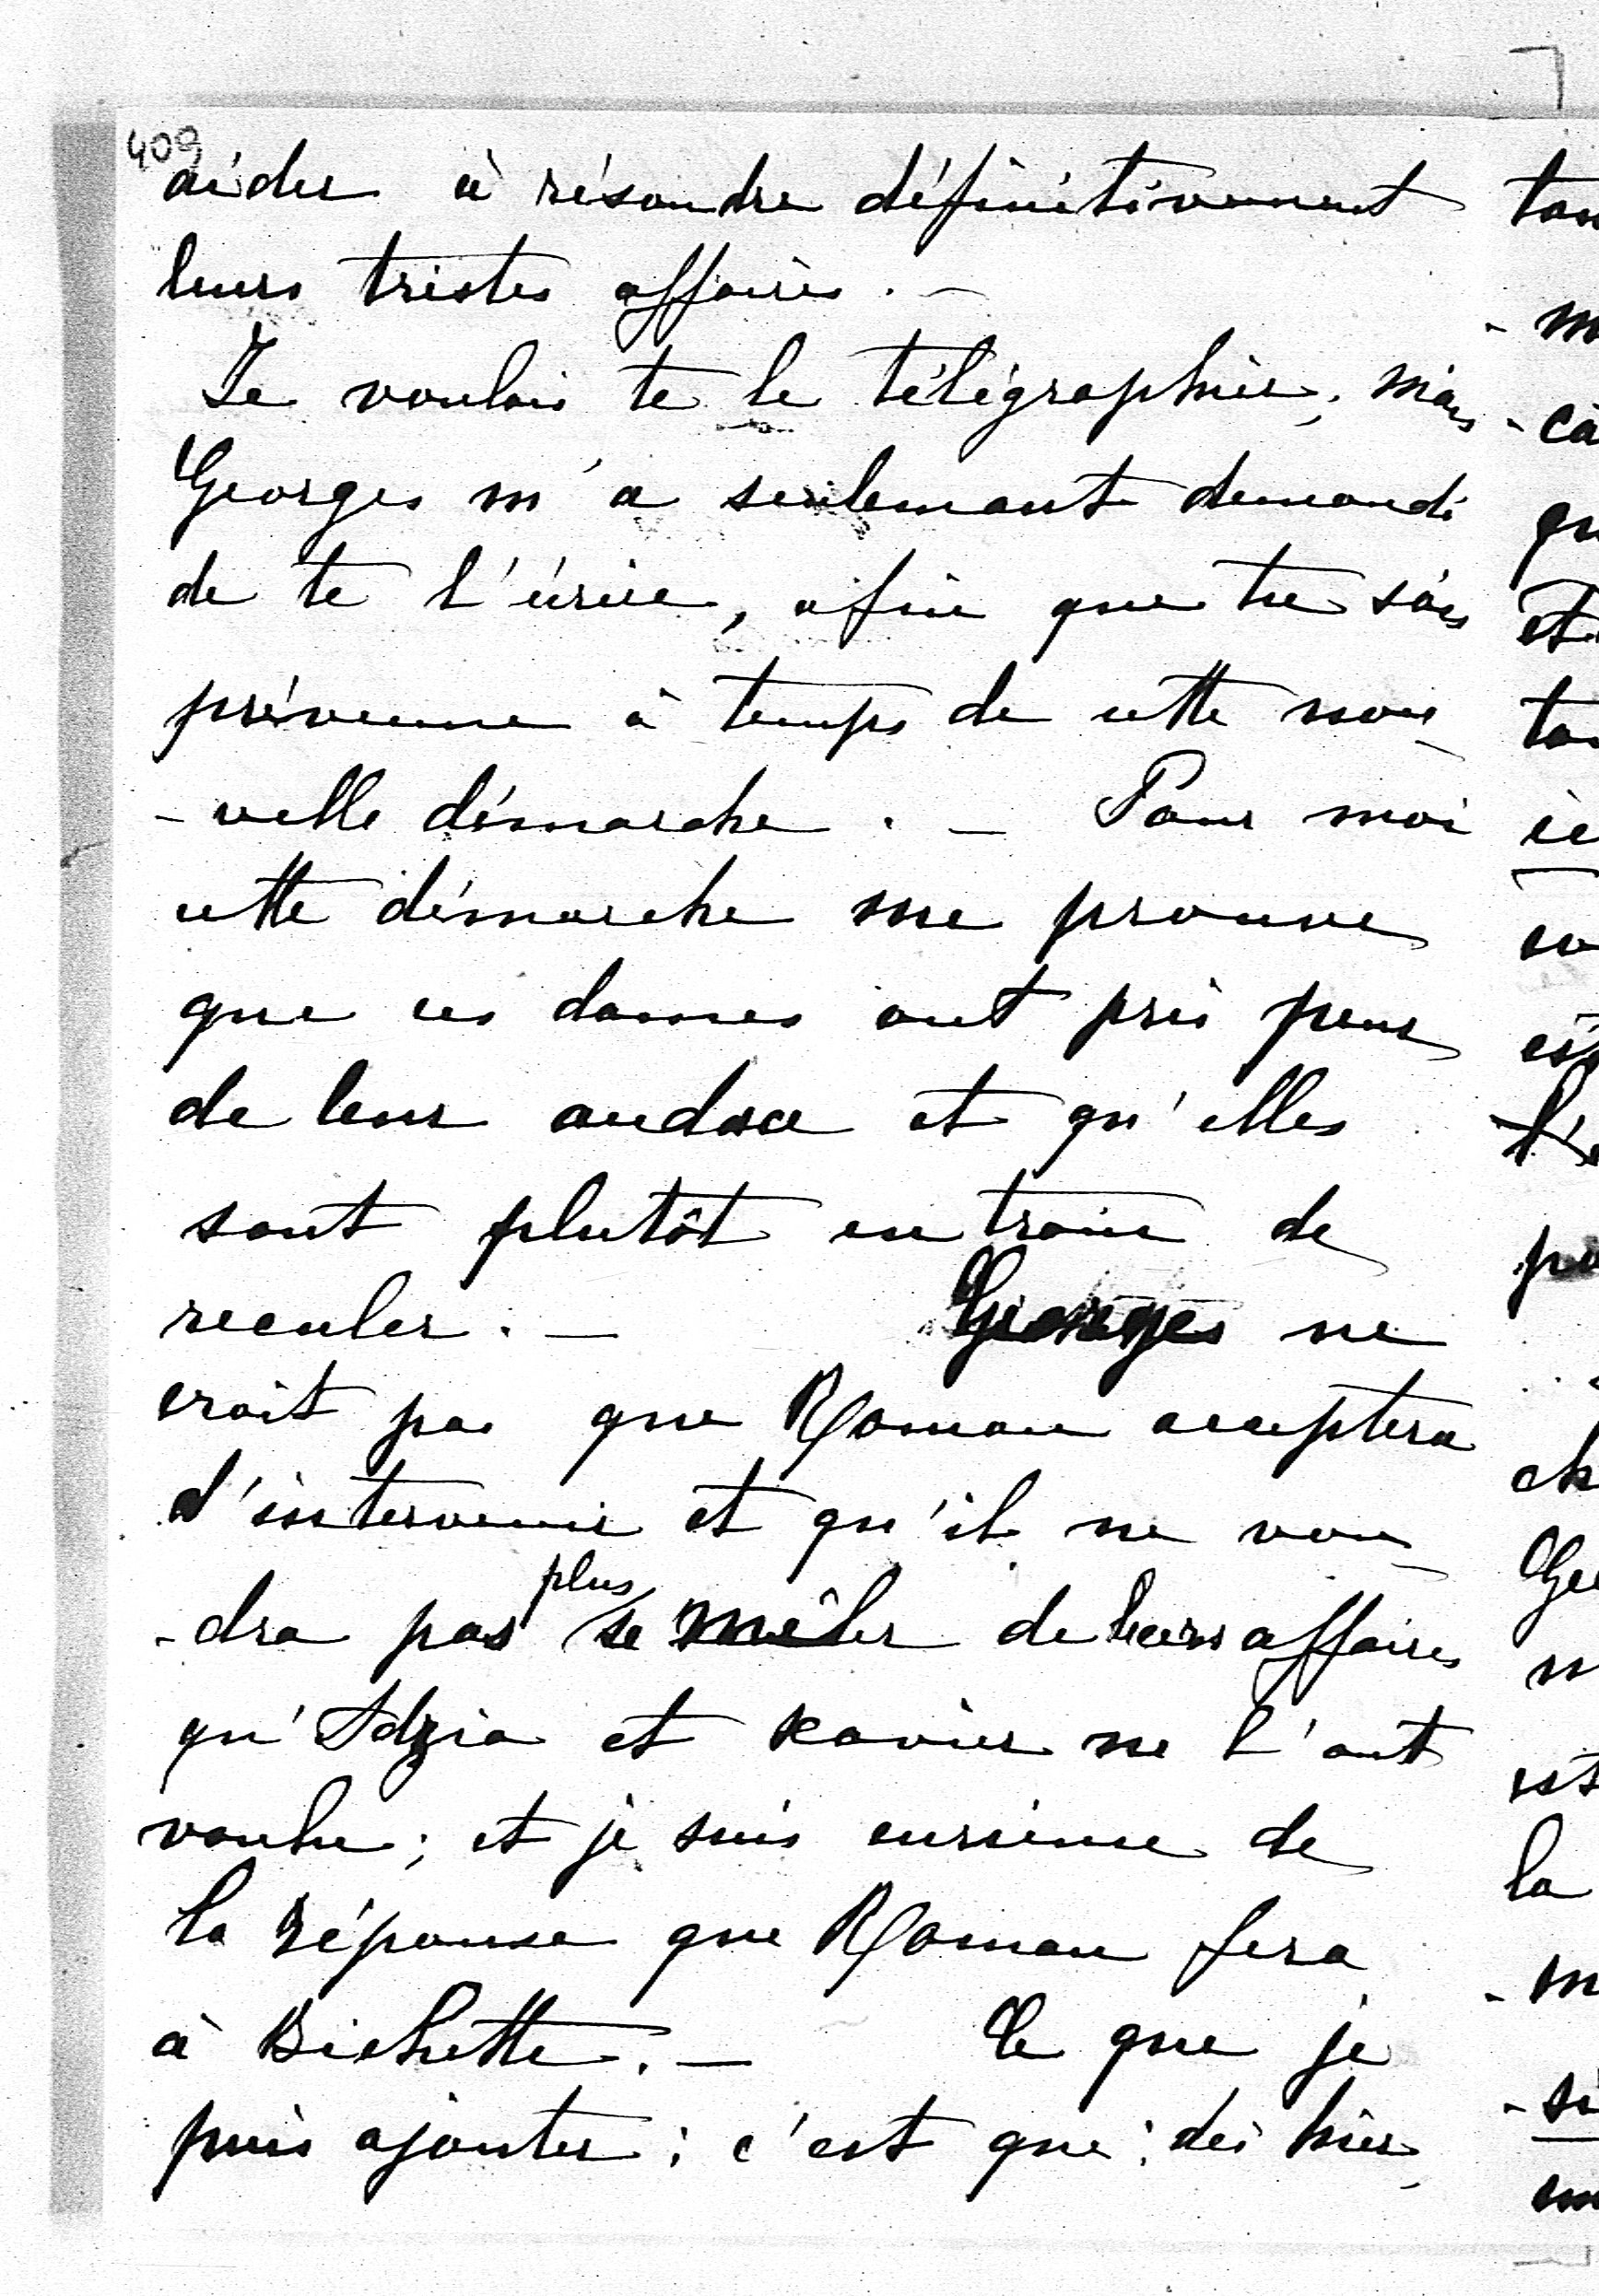 409
aider à résoudre définitivement
leurs tristes affaires. —
Je voulais te le télégraphier; mais
Georges m'a seulement demandé
de te l'écrire, afin que tu sois
prévenue à temps de cette nou-
-velle démarche. — Pour moi
cette démarche me prouve
que ces dames ont pris peur
de leur audace et qu'elles
sont plutôt en train de
reculer. — Georges ne
croit pas que Roman acceptera
d'intervenir et qu'il ne vou-
-dra pas plus se mêler de leurs affaires
qu'Adzia et Xavier ne l'ont
voulu; et je suis curieuse de
la réponse que Roman fera
à Bichette. — Ce que je
puis ajouter; c'est que; dès hier